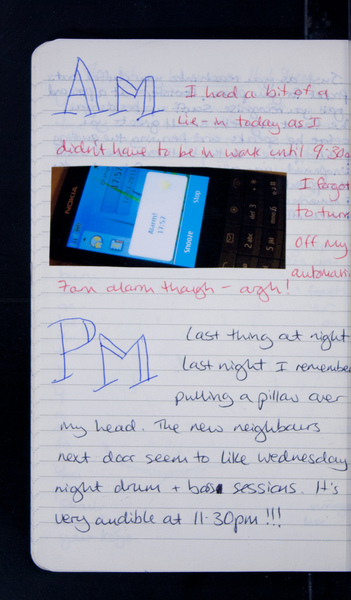 AM
I had a bit of a
lie-in today as I
didn't have to be in work until 9.30a
I forgot
to turn
off my
automati
7am alarm though - argh!
NOKIA
17:57
Alarm!
17:57
Snooze
Stop
PM
Last thing at night
last night I remember
pulling a pillow over
my head. The new neighbours
next door seem to like Wednesday
night drum + bass sessions. It's
very audible at 11.30pm!!!